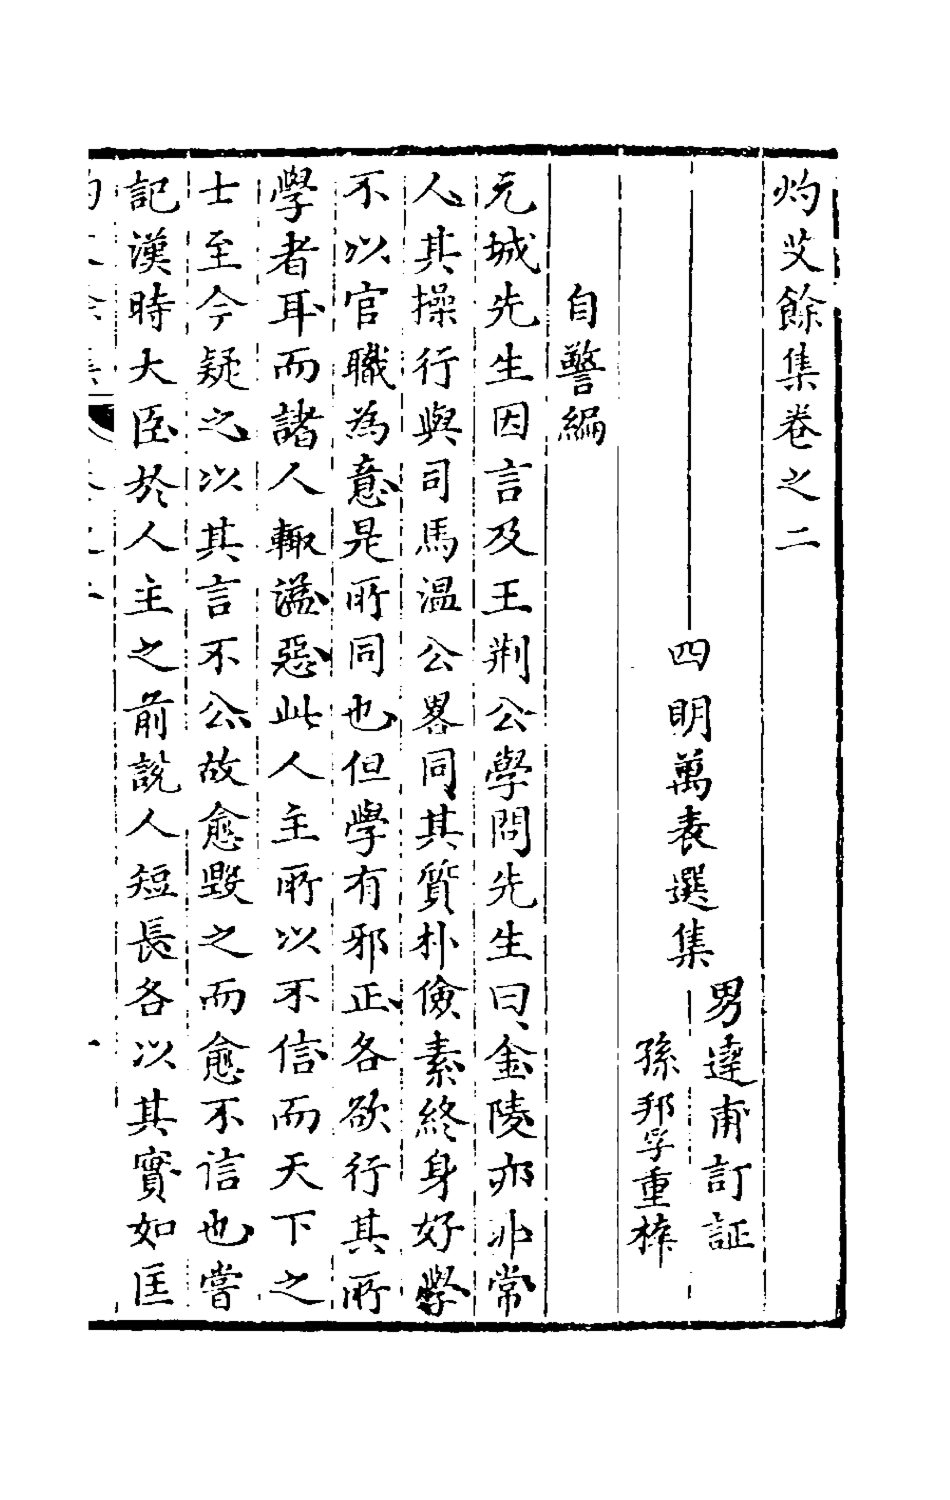 灼艾餘集卷之二
四明萬表選集
男達甫訂証
孫邦孚重梓
自警編
元城先生因言及王荆公學問先生曰金陵亦非常
人其操行與司馬温公畧同其質朴儉素終身好學
不以官職為意是所同也但學有邪正各欲行其所
學者耳而諸人輙溢惡此人主所以不信而天下之
士至今疑之以其言不公故愈毀之而愈不信也嘗
記漢時大臣於人主之前說人短長各以其實如匡